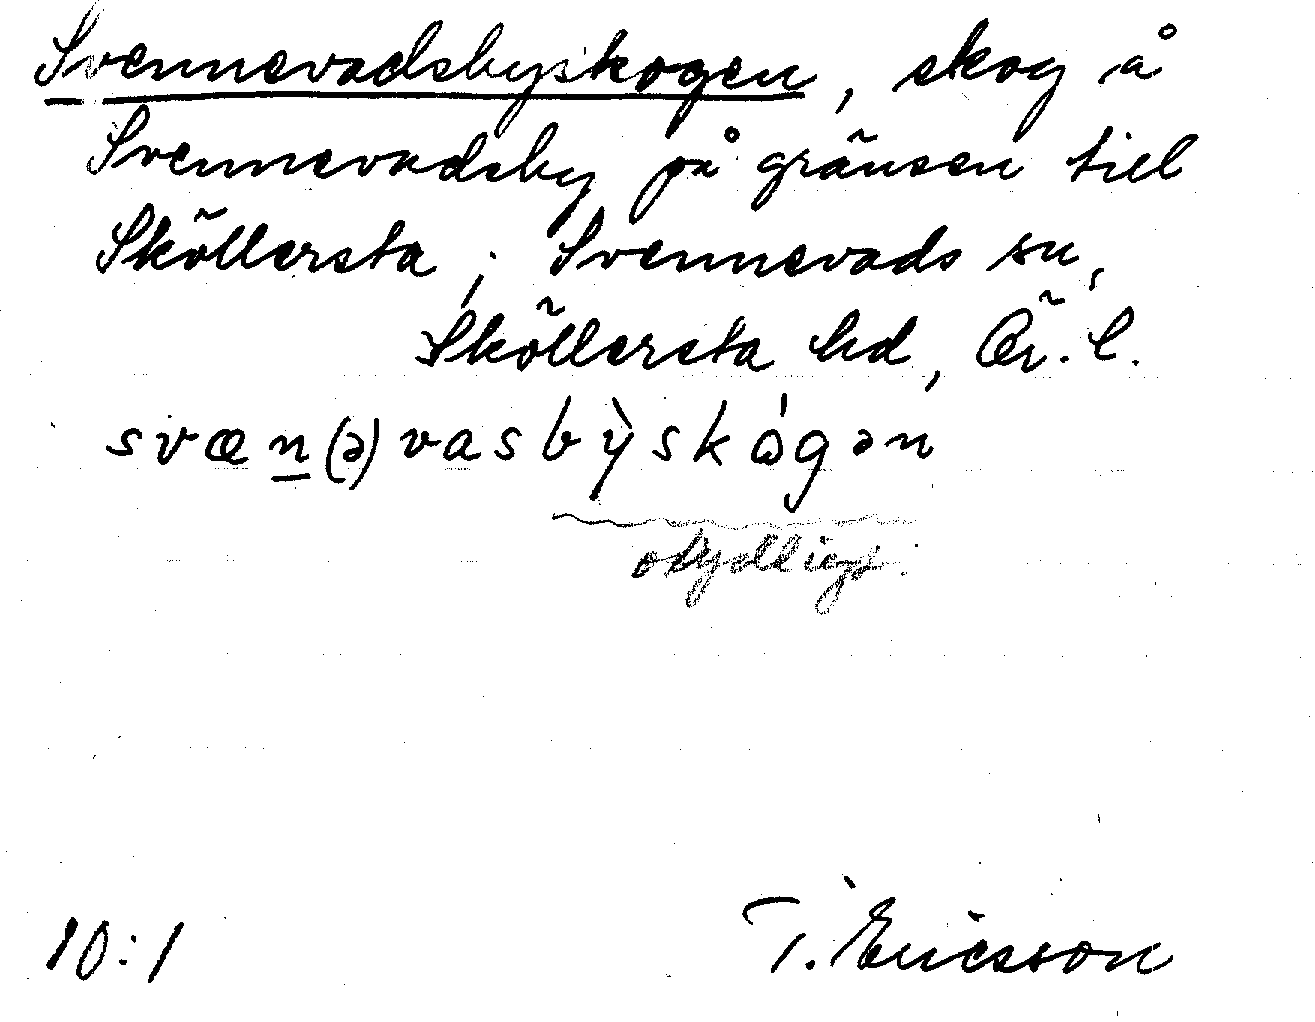 Svennevadsbyskogen, skog å
Svennevadsby på gränsen till
Sköllersta; Svennevads sn,
Sköllersta hd, Ör. l.
svæn(ə)vasbỳskógən
otydligt.
10:1 T. Ericsson